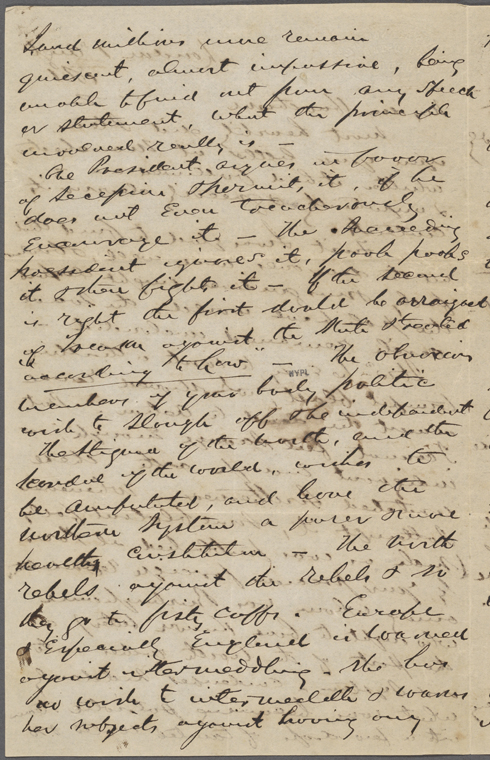 and millions more remain
quiescent, almost impassive, being
unable to find out from any speech
or statement, what the principle
involved really is —
The President argues in favour
of secession & permits it, if he
does not even treacherously
encourage it — The succeeding
President ignores it, pooh poohs
it & then fights it — If the second
is right the first should be arraigned
of treason against the State & treated
"according to law" — The obnoxious
NYPL
members of your body politic
wish to slough off the independent
The stigma of the North, and the
scandal of the world, wishes to
be amputated, and leave the
northern system a purer & more
healthy constitution — The North
rebels against the rebels & so
they go to fisty cuffs. Europe
& Especially England is warned
against intermeddling. She has
no wish to intermeddle & warns
her subjects against having any